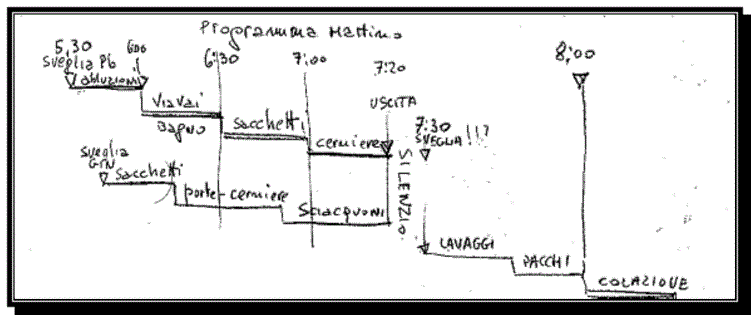 Programma Mattino
5,30
6:00
6:30
7:00
7:20
8,00
Sveglia Pb
abluzioni
USCITA
Viavai
Bagno
sacchetti
cerniere
7:30
SVEGLIA !!?
sveglia
GIN
sacchetti
porte-cerniere
Sciacquoni
SILENZIO
LAVAGGI
PACCHI
COLAZIONE